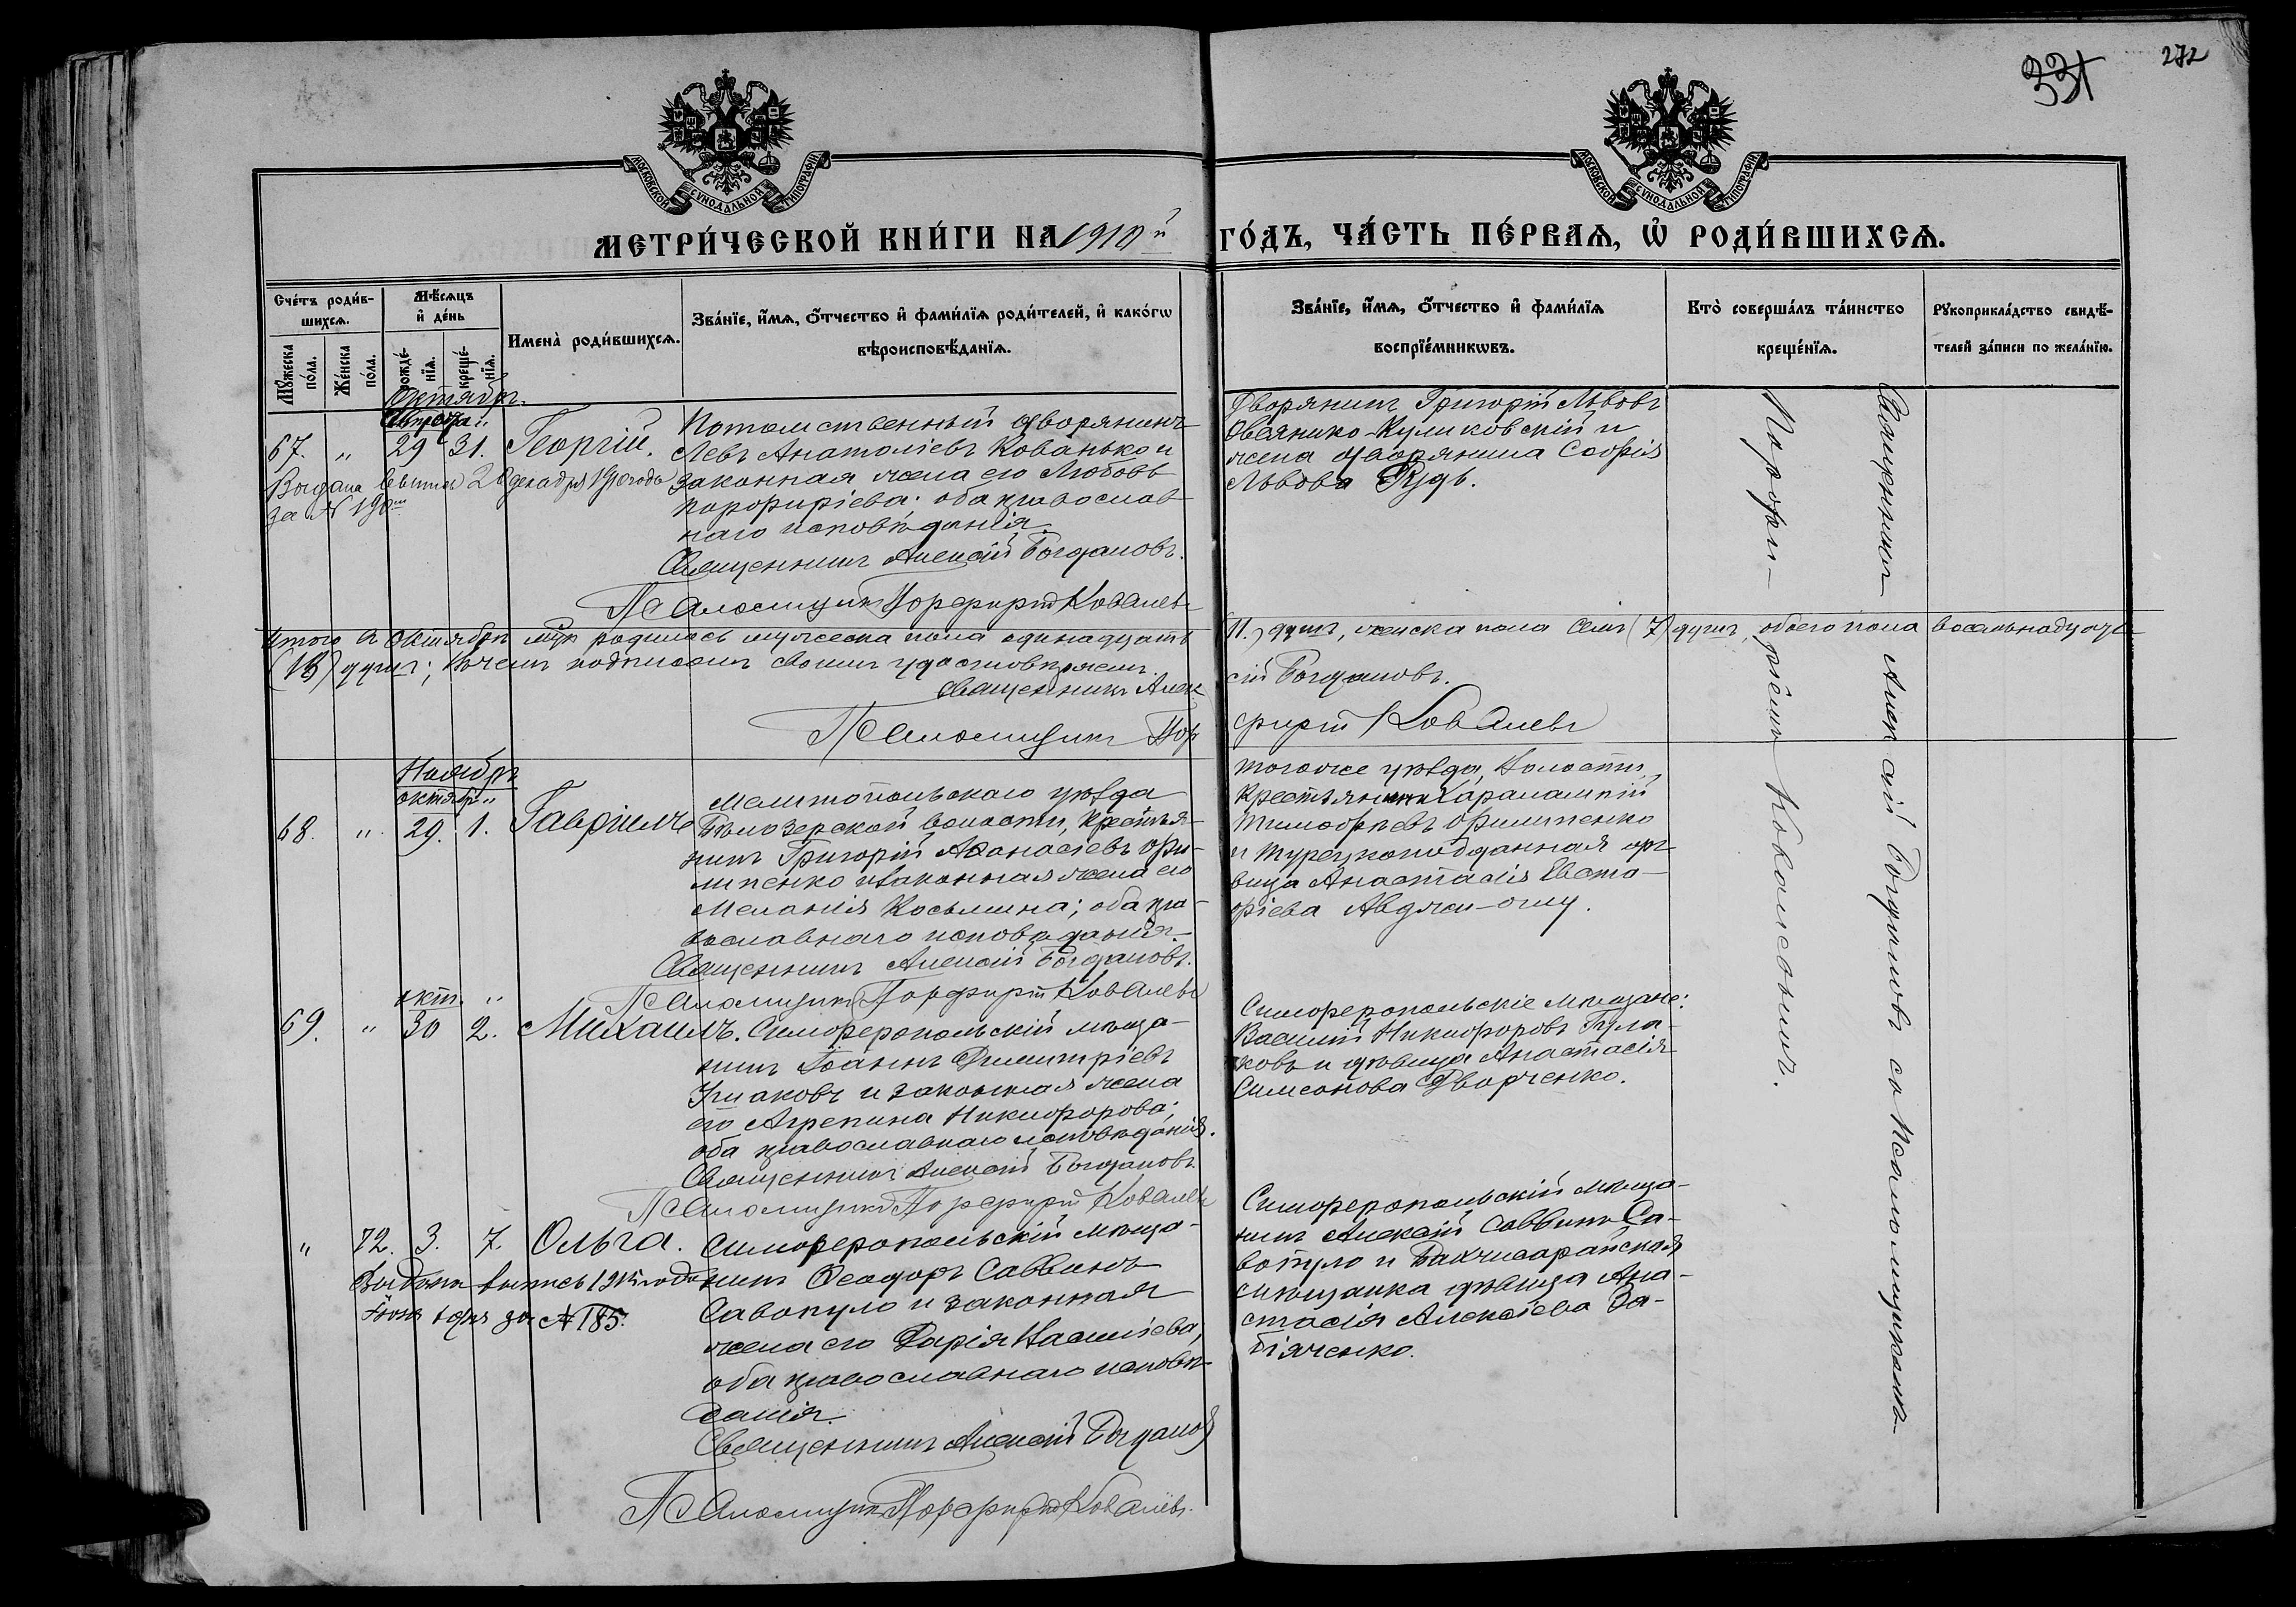 272
331
МОСКОВСКОЙ СѴНОДАЛЬНОЙ ТИПОГРАФІИ
МОСКОВСКОЙ СѴНОДАЛЬНОЙ ТИПОГРАФІИ
МЕТРИ́ЧЕСКОЙ КНИ́ГИ НА 1910й ГО́ДЪ, ЧА́СТЬ ПЕ́РВАѦ, Ѡ҆ РОДИ́ВШИХСѦ.
Сче́тъ роди́в-
шихсѧ.
Мꙋ́жеска по́ла.
Же́нска по́ла.
Мѣ́сѧцъ
и҆ де́нь
рожде́-
нїѧ.
креще́-
нїѧ.
Имена̀ роди́вшихсѧ.
Зва́нїе, и҆́мѧ, ѻ҆́тчество и҆ фами́лїѧ роди́телей, и҆ како́гѡ
вѣроисповѣ́данїѧ.
Зва́нїе, и҆́мѧ, ѻ҆́тчество и҆ фами́лїѧ
воспрїе́мникѡвъ.
Кто̀ соверша́лъ та́инство
креще́нїѧ.
Рꙋкоприкла́дство свидѣ́-
телей за́писи по жела́нїю.
Октябрь.
Августа "
67. " 29 31. Георгій.
Выдана выпись 28 декабря 1910 года
за № 190
Потомственный дворянинъ
Левъ Анатоліевъ Кованько и
законная жена его Любовь
Порфиріева; оба православ-
наго исповѣданія.
Священникъ Алексій Богдановъ.
Псаломщикъ Порфирій Ковалевъ
Дворянинъ Григорій Львовъ
Овсянико-Куликовскій и
жена дворянина Софія
Львова Рудь.
Итого въ Октябрѣ мѣс. родилось мужеска пола одинадцать (11.) душъ, женска пола семь (7) душъ, обоего пола восемьнадцать
(18) душъ; въ чемъ подписомъ своимъ удостовѣряемъ.
Священникъ Алексій Богдановъ.
Псаломщикъ Порфирій Ковалевъ
Ноябрь
октяб. "
68. " 29. 1. Гавріилъ
Мелитопольскаго уѣзда
Бѣлозерской волости, крестья-
нинъ Григорій Аѳанасіевъ Фи-
липенко и законная жена его
Меланія Косьмина; оба пра-
вославнаго исповѣданія.
Священникъ Алексій Богдановъ.
Псаломщикъ Порфирій Ковалевъ
Тогоже уѣзда, волости,
крестьянинъ Харалампій
Тимоѳеевъ Филипенко
и турецкоподданная дѣ-
вица Анастасія Евста-
фіева Авджи-оглу.
окт. "
69. " 30 2. Михаилъ.
Симферопольскій мѣща-
нинъ Іоаннъ Димитріевъ
Ушаковъ и законная жена
его Агрепина Никифорова;
оба православнаго исповѣданія.
Священникъ Алексій Богдановъ
Псаломщикъ Порфирій Ковалевъ
Симферопольскіе мѣщане:
Василій Никифоровъ Гула-
ковъ и дѣвица Анастасія
Симеонова Дворченко.
" 72. 3. 7. Ольга.
Выдана выпись 1915 года
Іюня 1 дня за № 185.
Симферопольскій мѣща-
нинъ Ѳеодоръ Саввинъ
Савопуло и законная
жена его Дарія Василіева,
оба православнаго исповѣ-
данія.
Священникъ Алексій Богдановъ
Псаломщикъ Порфирій Ковалевъ.
Симферопольскій мѣща-
нинъ Алексій Саввинъ Са-
вопуло и Бахчисарайская
мѣщанка дѣвица Ана-
стасія Алексіева За-
біяченко.
Священникъ Алексій Богдановъ со Псаломщикомъ
Порфиріемъ Ковалевымъ.